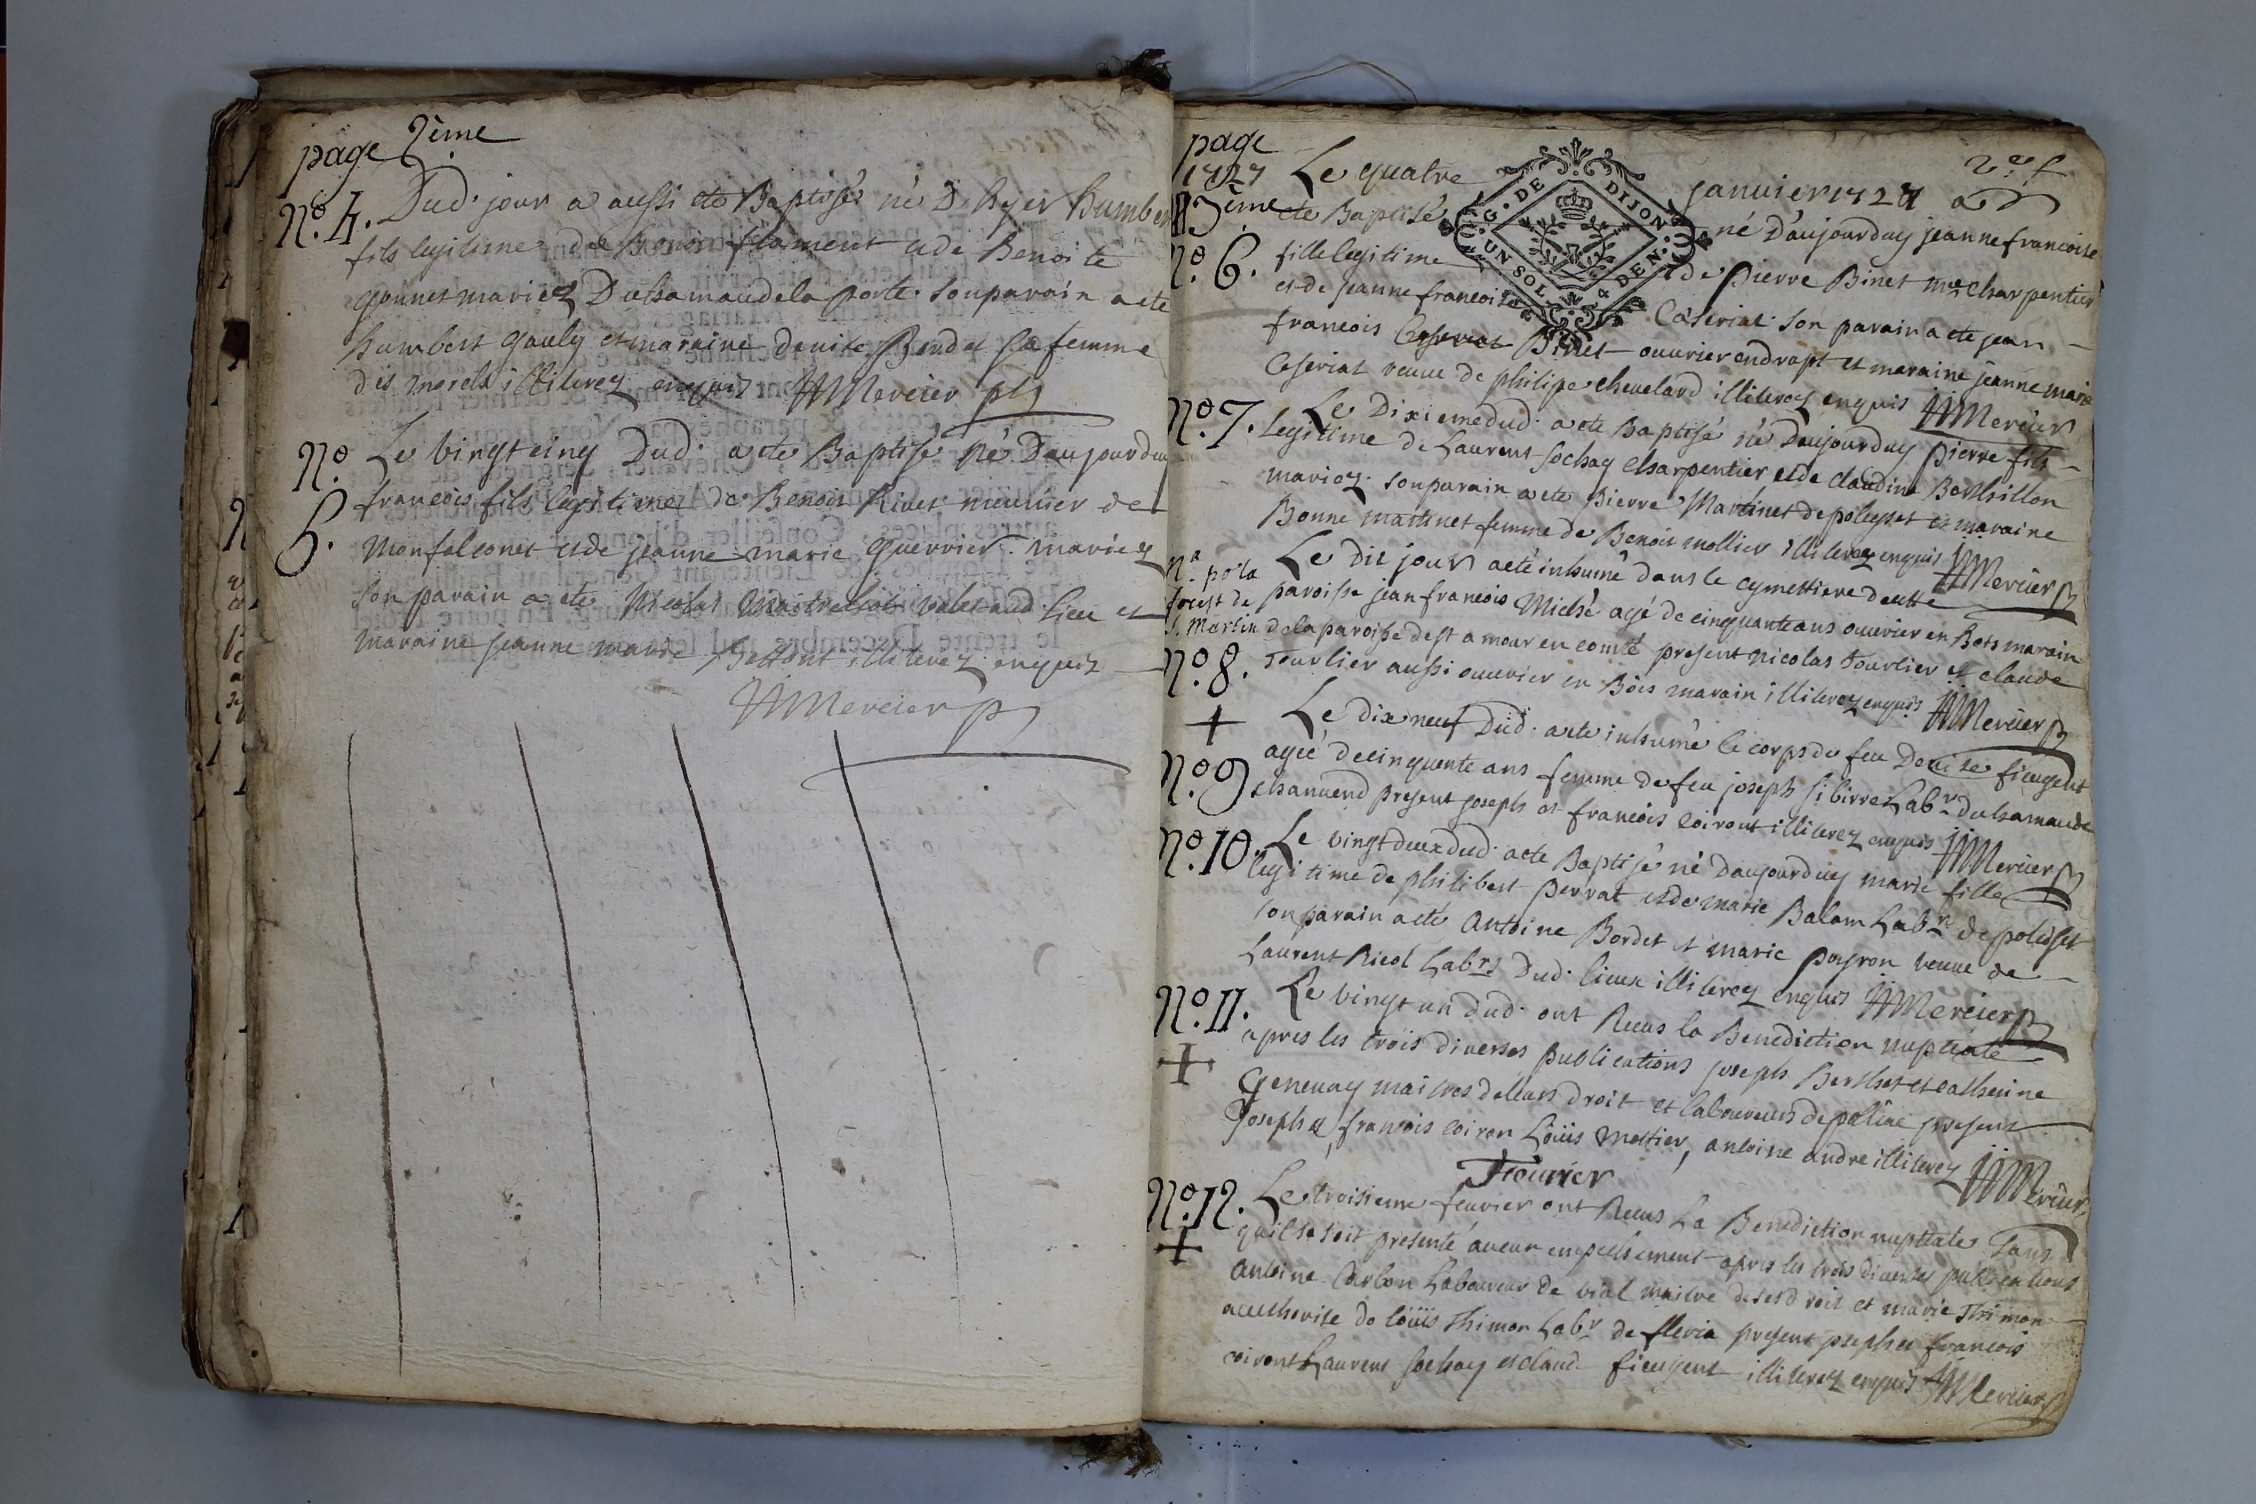 page 2ème
No. 4. Dud. jour a aussi ete Baptisé né D'hyer humber
fils legitime de Benoit flament et de Benoite
gonnet mariez Duhamaudelaporte. son parain a ete
humbert gauly et maraine denise Bondet sa femme
des morels illiterez enquis Mercier
No. 5. Le vingt cinq Dud. a ete Baptisé né Daujourduy
francois fils legitime de Benoit Rivet meunier de
Monfalconet et de jeanne marie guerrier mariez
son parain a ete Nicolas valet aud. lieu et
maraine jeanne marie illiterez enquis
Mercier
page
1727
3ème
2e f
G. DE DIJON
UN SOL 4 DEN.
Le quatre janvier 1727 a
ete Baptisé né D'aujourduy jeanne francoise
No. 6. fille legitime de Pierre Binet me charpentier
et de jeanne francoise Caseriat. son parain a ete jean
francois Binet ouvrier en drapt et maraine jeanne marie
Ceseriat veuve de philipe chevelard illiterez enquis Mercier
No. 7. Le Dixieme dud. a ete Baptisé né Daujourduy pierre fils
legitime de Laurent sochay charpentier et de claudine Berthillon
mariez. son parain a ete Pierre Martinet de polieset et maraine
Bonne martinet femme de Benoit mollier illiterez enquis Mercier
Na. po. la
forest de
S. Martin
No. 8.
Le Dit jour a eté inhumé dans le cymettiere de cette
paroisse jean francois Miché agé de cinquante ans ouvrier en Bois marain
de la paroisse de st amour en comté present nicolas tourlier et claude
Tourlier aussi ouvrier en Bois marain illiterez enquis Mercier
+
No. 9. Le dixneuf Dud. a ete inhumé le corps de feu Denise fieugent
agée de cinquente ans femme de feu joseph sibirre Labr. du hamaude
chanuend present joseph et francois coiront illiterez enquis Mercier
No. 10. Le vingt deux dud. a ete Baptisé né Daujourduy marie fille
legitime de philibert perrat et de marie Balam Labr. de polieset
son parain a ete Antoine Bordet et marie poyron veuve de
Laurent Ricol Labrs Dud. lieux illiterez enquis Mercier
No. 11. Le vingt un dud. ont Recus la Benediction nuptiale
+ apres les trois diverses publications joseph Berthet et catherine
Genevay maitres de leurs droit et laboureurs de poliae presens
joseph et francois coiron Loüis mottier, antoine andre illiterez Mercier
Feurier
No. 12. Le troisieme feurier ont Recus La Benediction nuptiale sans
+ quil se soit presenté aucun empechement apres les trois diverses publications
Antoine Carbon Laboureur de vial maitre de ses droit et marie Thimon
authorise de loüis Thimon Labr de fleria present joseph et francois
coiront Laurent sochay et claud fieugent illiterez enquis Mercier